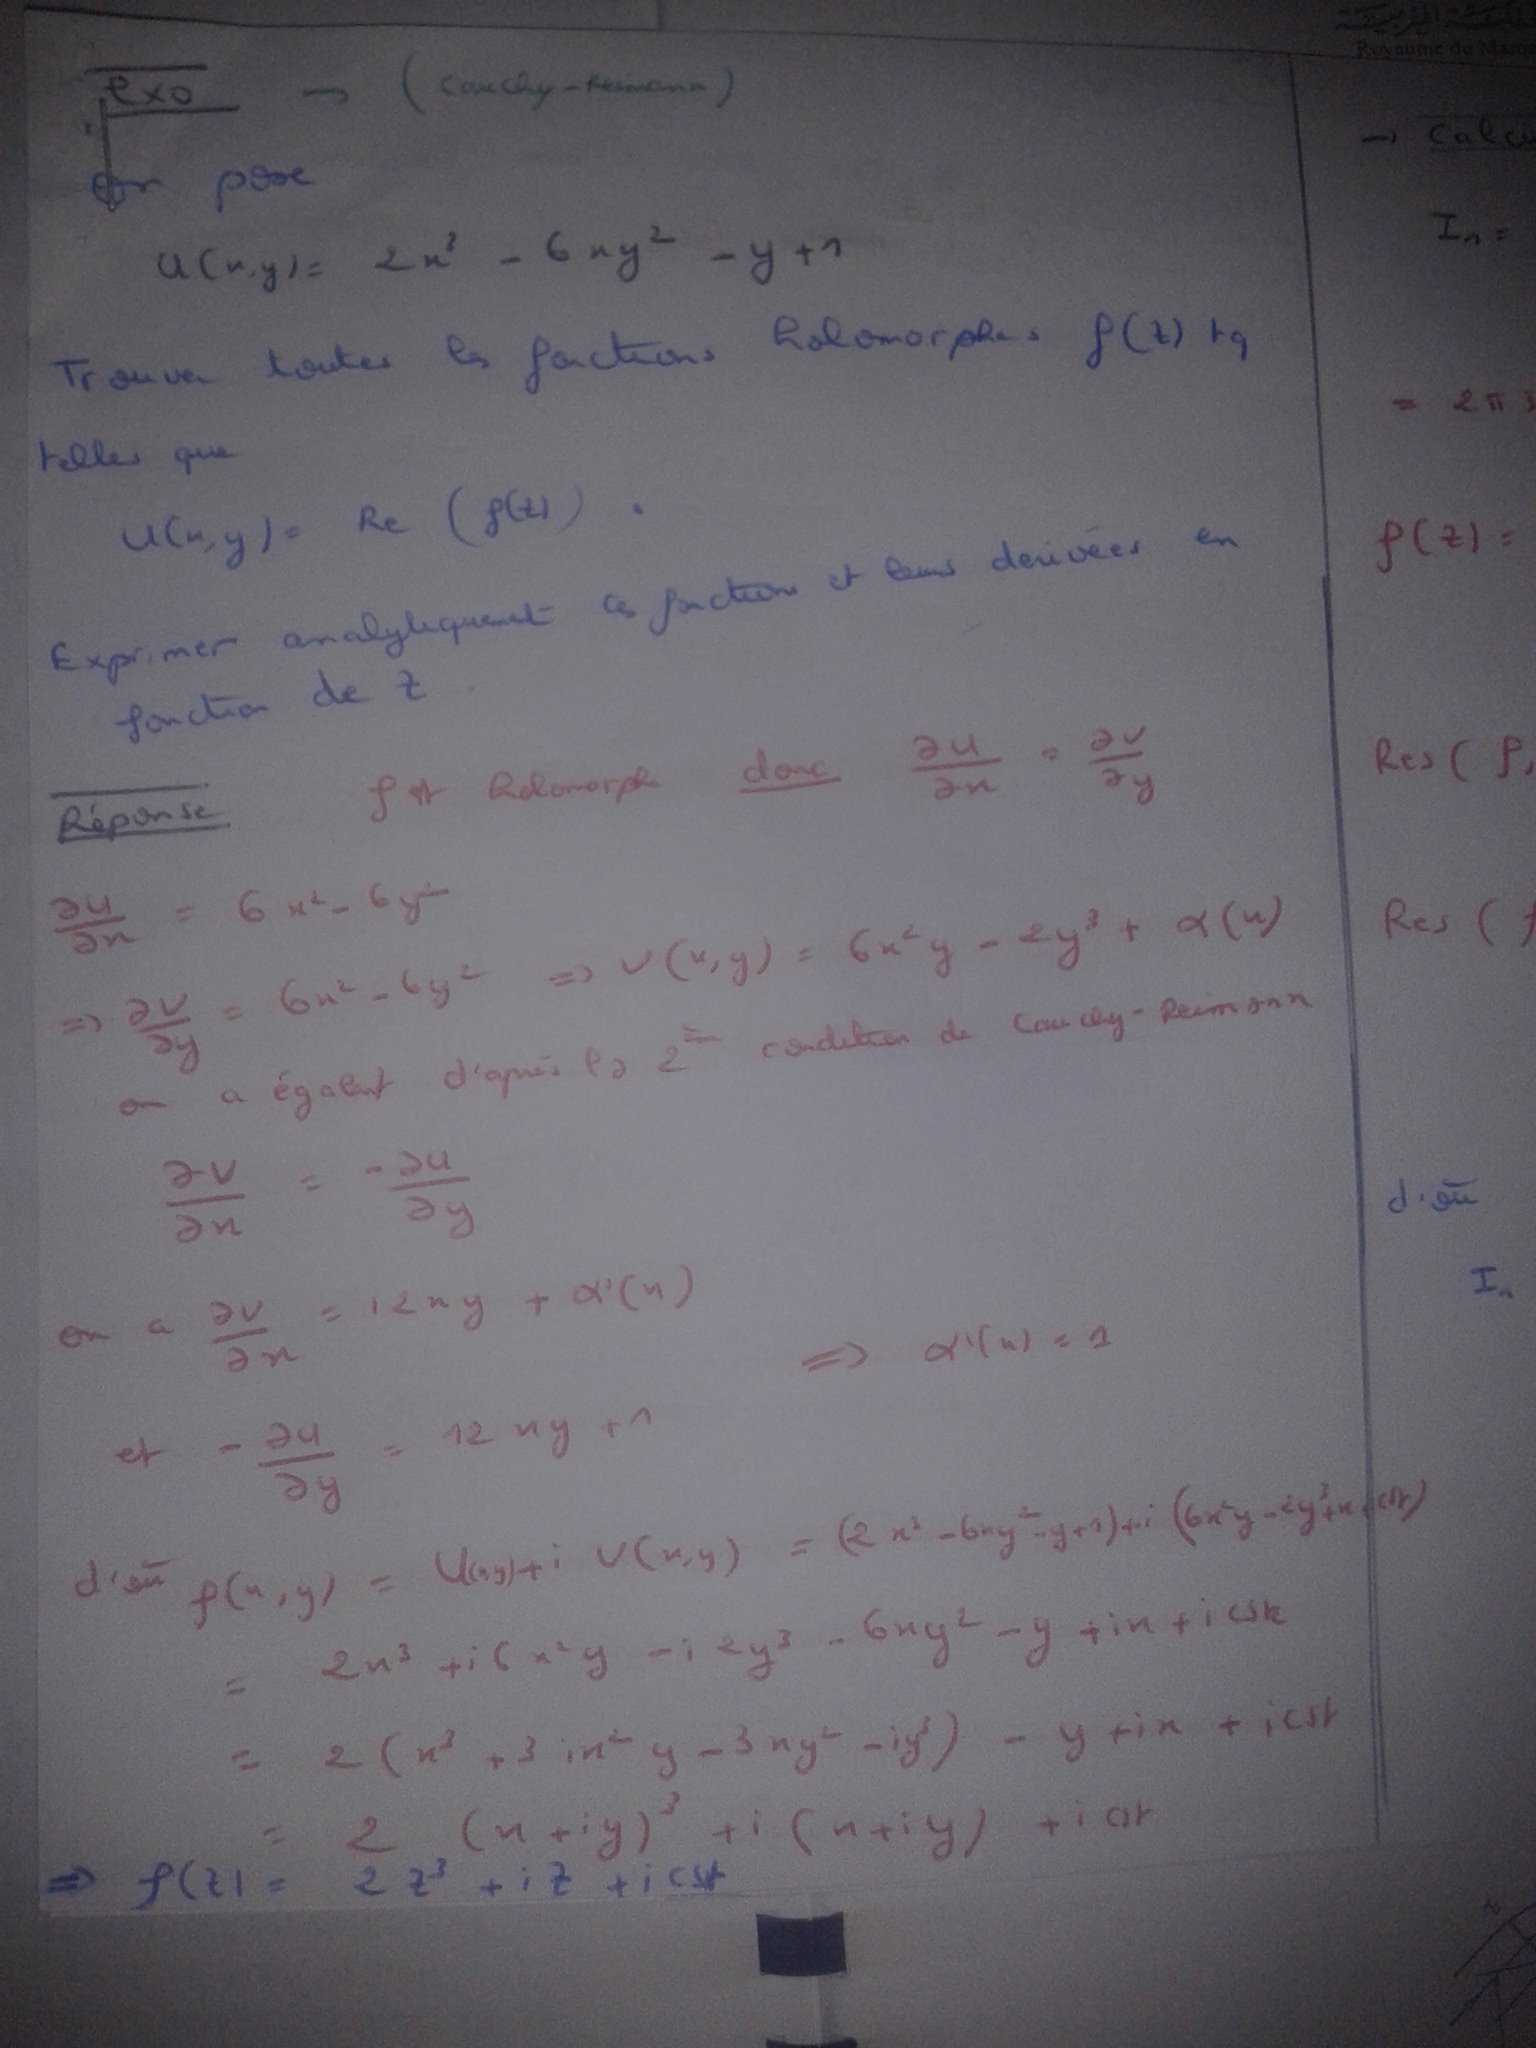 exo → (Cauchy-Reimann)
on pose
U(x,y)= 2x³ - 6xy² - y+1
Trouver toutes les fonctions holomorphes f(z) tq
telles que
U(x,y)= Re (f(z)).
Exprimer analytiquement ces fonctions et leurs derivées en
fonction de z.
Réponse f est holomorphe donc ∂u/∂x = ∂v/∂y
∂u/∂x = 6x² - 6y²
=> ∂v/∂y = 6x² - 6y² => v(x,y) = 6x²y - 2y³ + α(x)
on a égalent d'après la 2ème condition de Cauchy-Reimann
∂v/∂x = -∂u/∂y
on a ∂v/∂x = 12xy + α'(x)
=> α'(x) = 1
et -∂u/∂y = 12xy+1
d'où f(x,y) = U(x,y)+i V(x,y) = (2x³-6xy²-y+1)+i(6x²y-2y³+x+cst)
= 2x³ +i6x²y -i2y³ -6xy² -y +ix+icste
= 2(x³ +3ix²y -3xy² -iy³) - y+ix + icst
= 2 (x+iy)³ +i(x+iy) +icst
=> f(z) = 2z³ +iz +icst
Royaume du Maro
→ Calcu
In =
= 2π
f(z) =
Res( f,
Res (
d'où
In